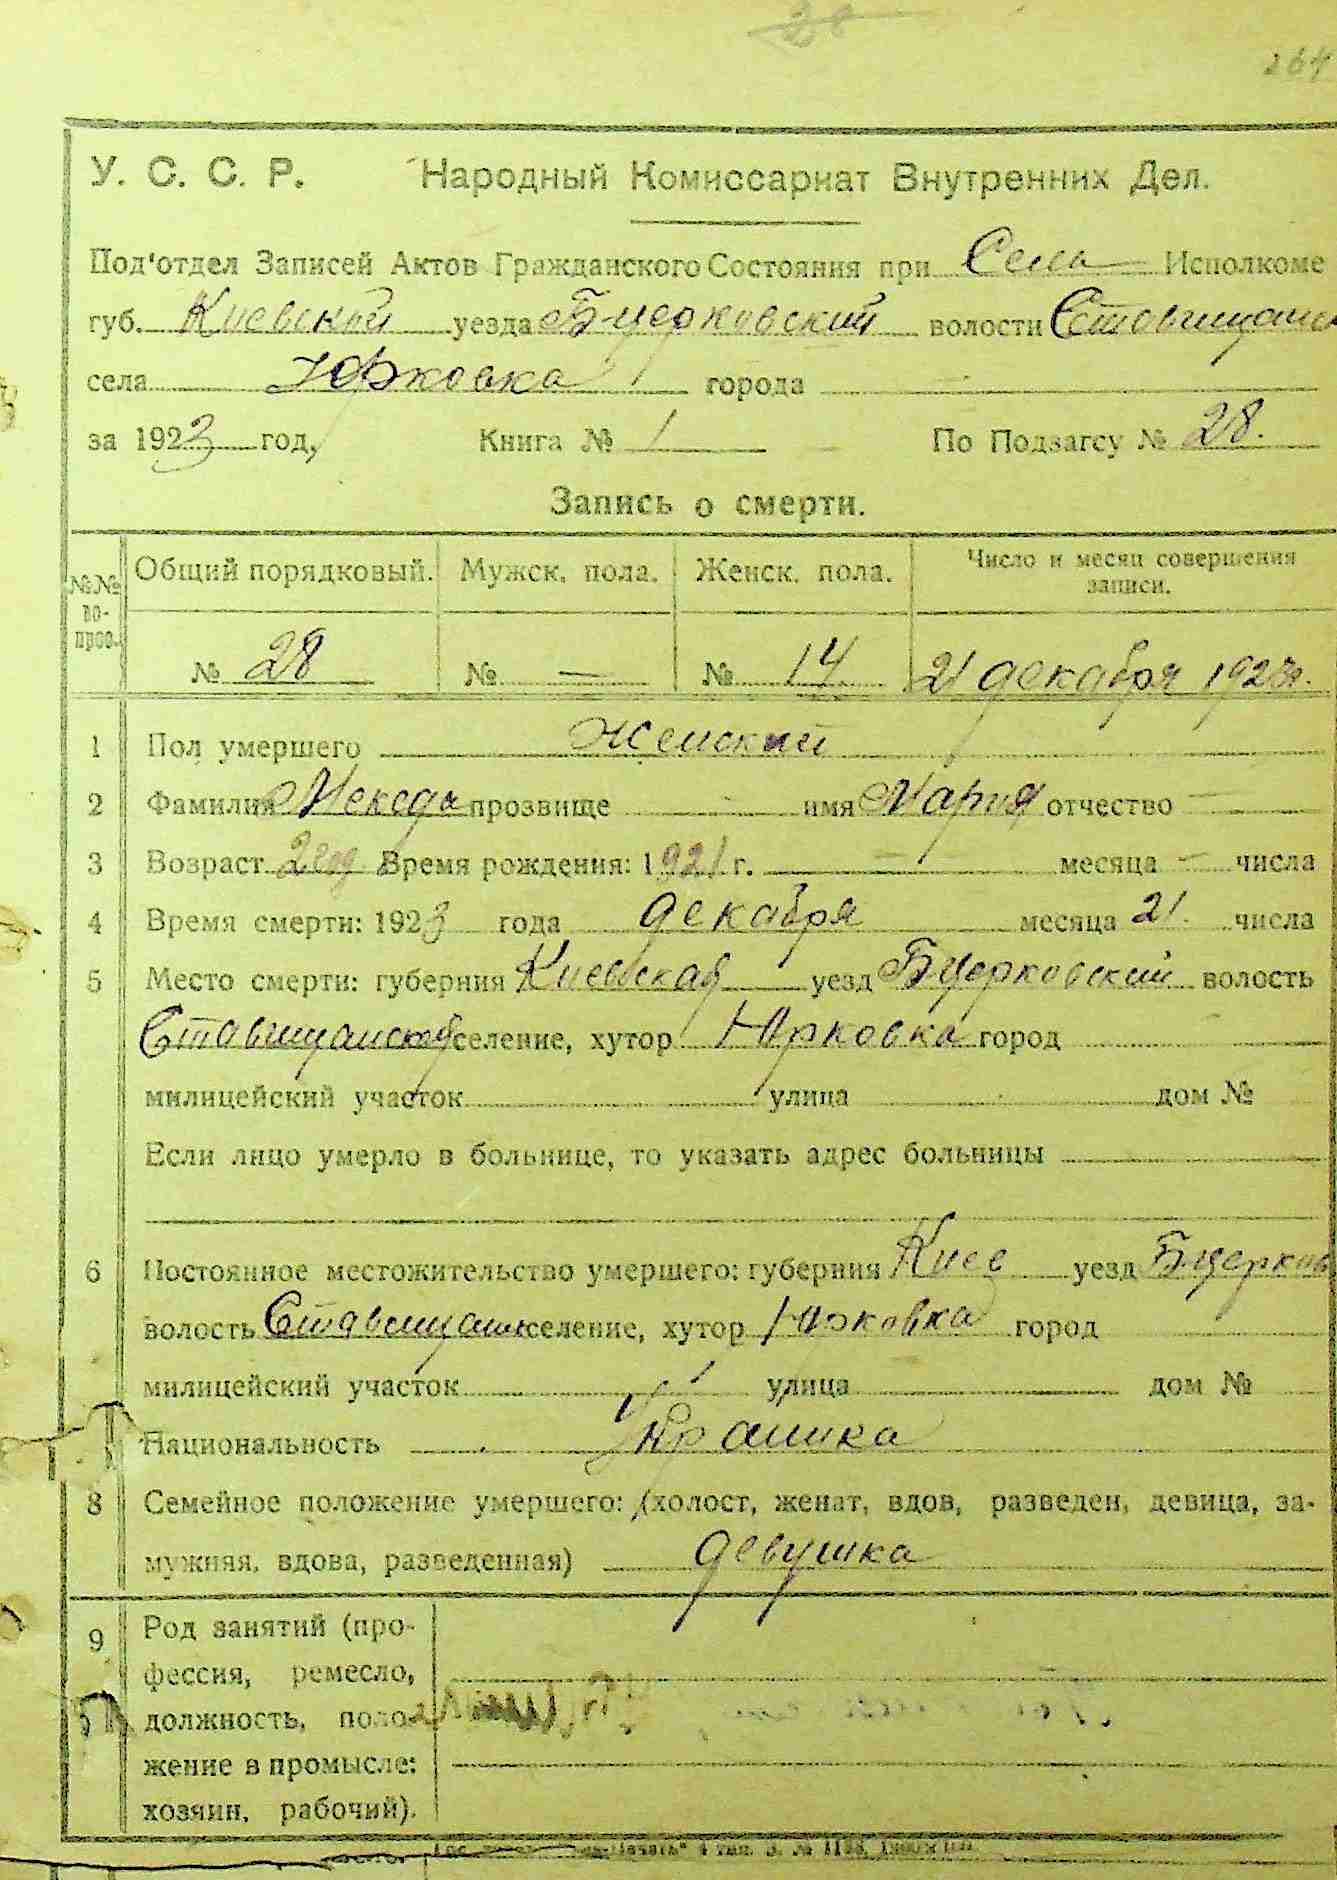 28
264
У. С. С. Р. Народный Комиссариат Внутренних Дел.
Под'отдел Записей Актов Гражданского Состояния при Села Исполкоме
губ. Киевской уезда Б-церковский волости Ставищанс
села Юрковка города
за 1923 год, Книга № 1 По Подзагсу № 28.
Запись о смерти.
№№ во-прос. Общий порядковый. Мужск. пола. Женск. пола. Число и месяц совершения записи.
№ 28 № — № 14 21 декабря 1923 г.
1 Пол умершего женский
2 Фамилия прозвище имя Мария отчество —
3 Возраст 2 год Время рождения: 1921 г. — месяца — числа
4 Время смерти: 1923 года декабря месяца 21 числа
5 Место смерти: губерния Киевская уезд Бцерковский волость
Ставищанская селение, хутор Юрковка город
милицейский участок улица дом №
Если лицо умерло в больнице, то указать адрес больницы
6 Постоянное местожительство умершего: губерния Киев уезд Б-церков
волость селение, хутор Юрковка город
милицейский участок улица дом №
Национальность Украинка
8 Семейное положение умершего: (холост, женат, вдов, разведен, девица, за-
мужняя, вдова, разведенная) девушка
9 Род занятий (про-
фессия, ремесло,
должность, поло-
жение в промысле:
хозяин, рабочий).